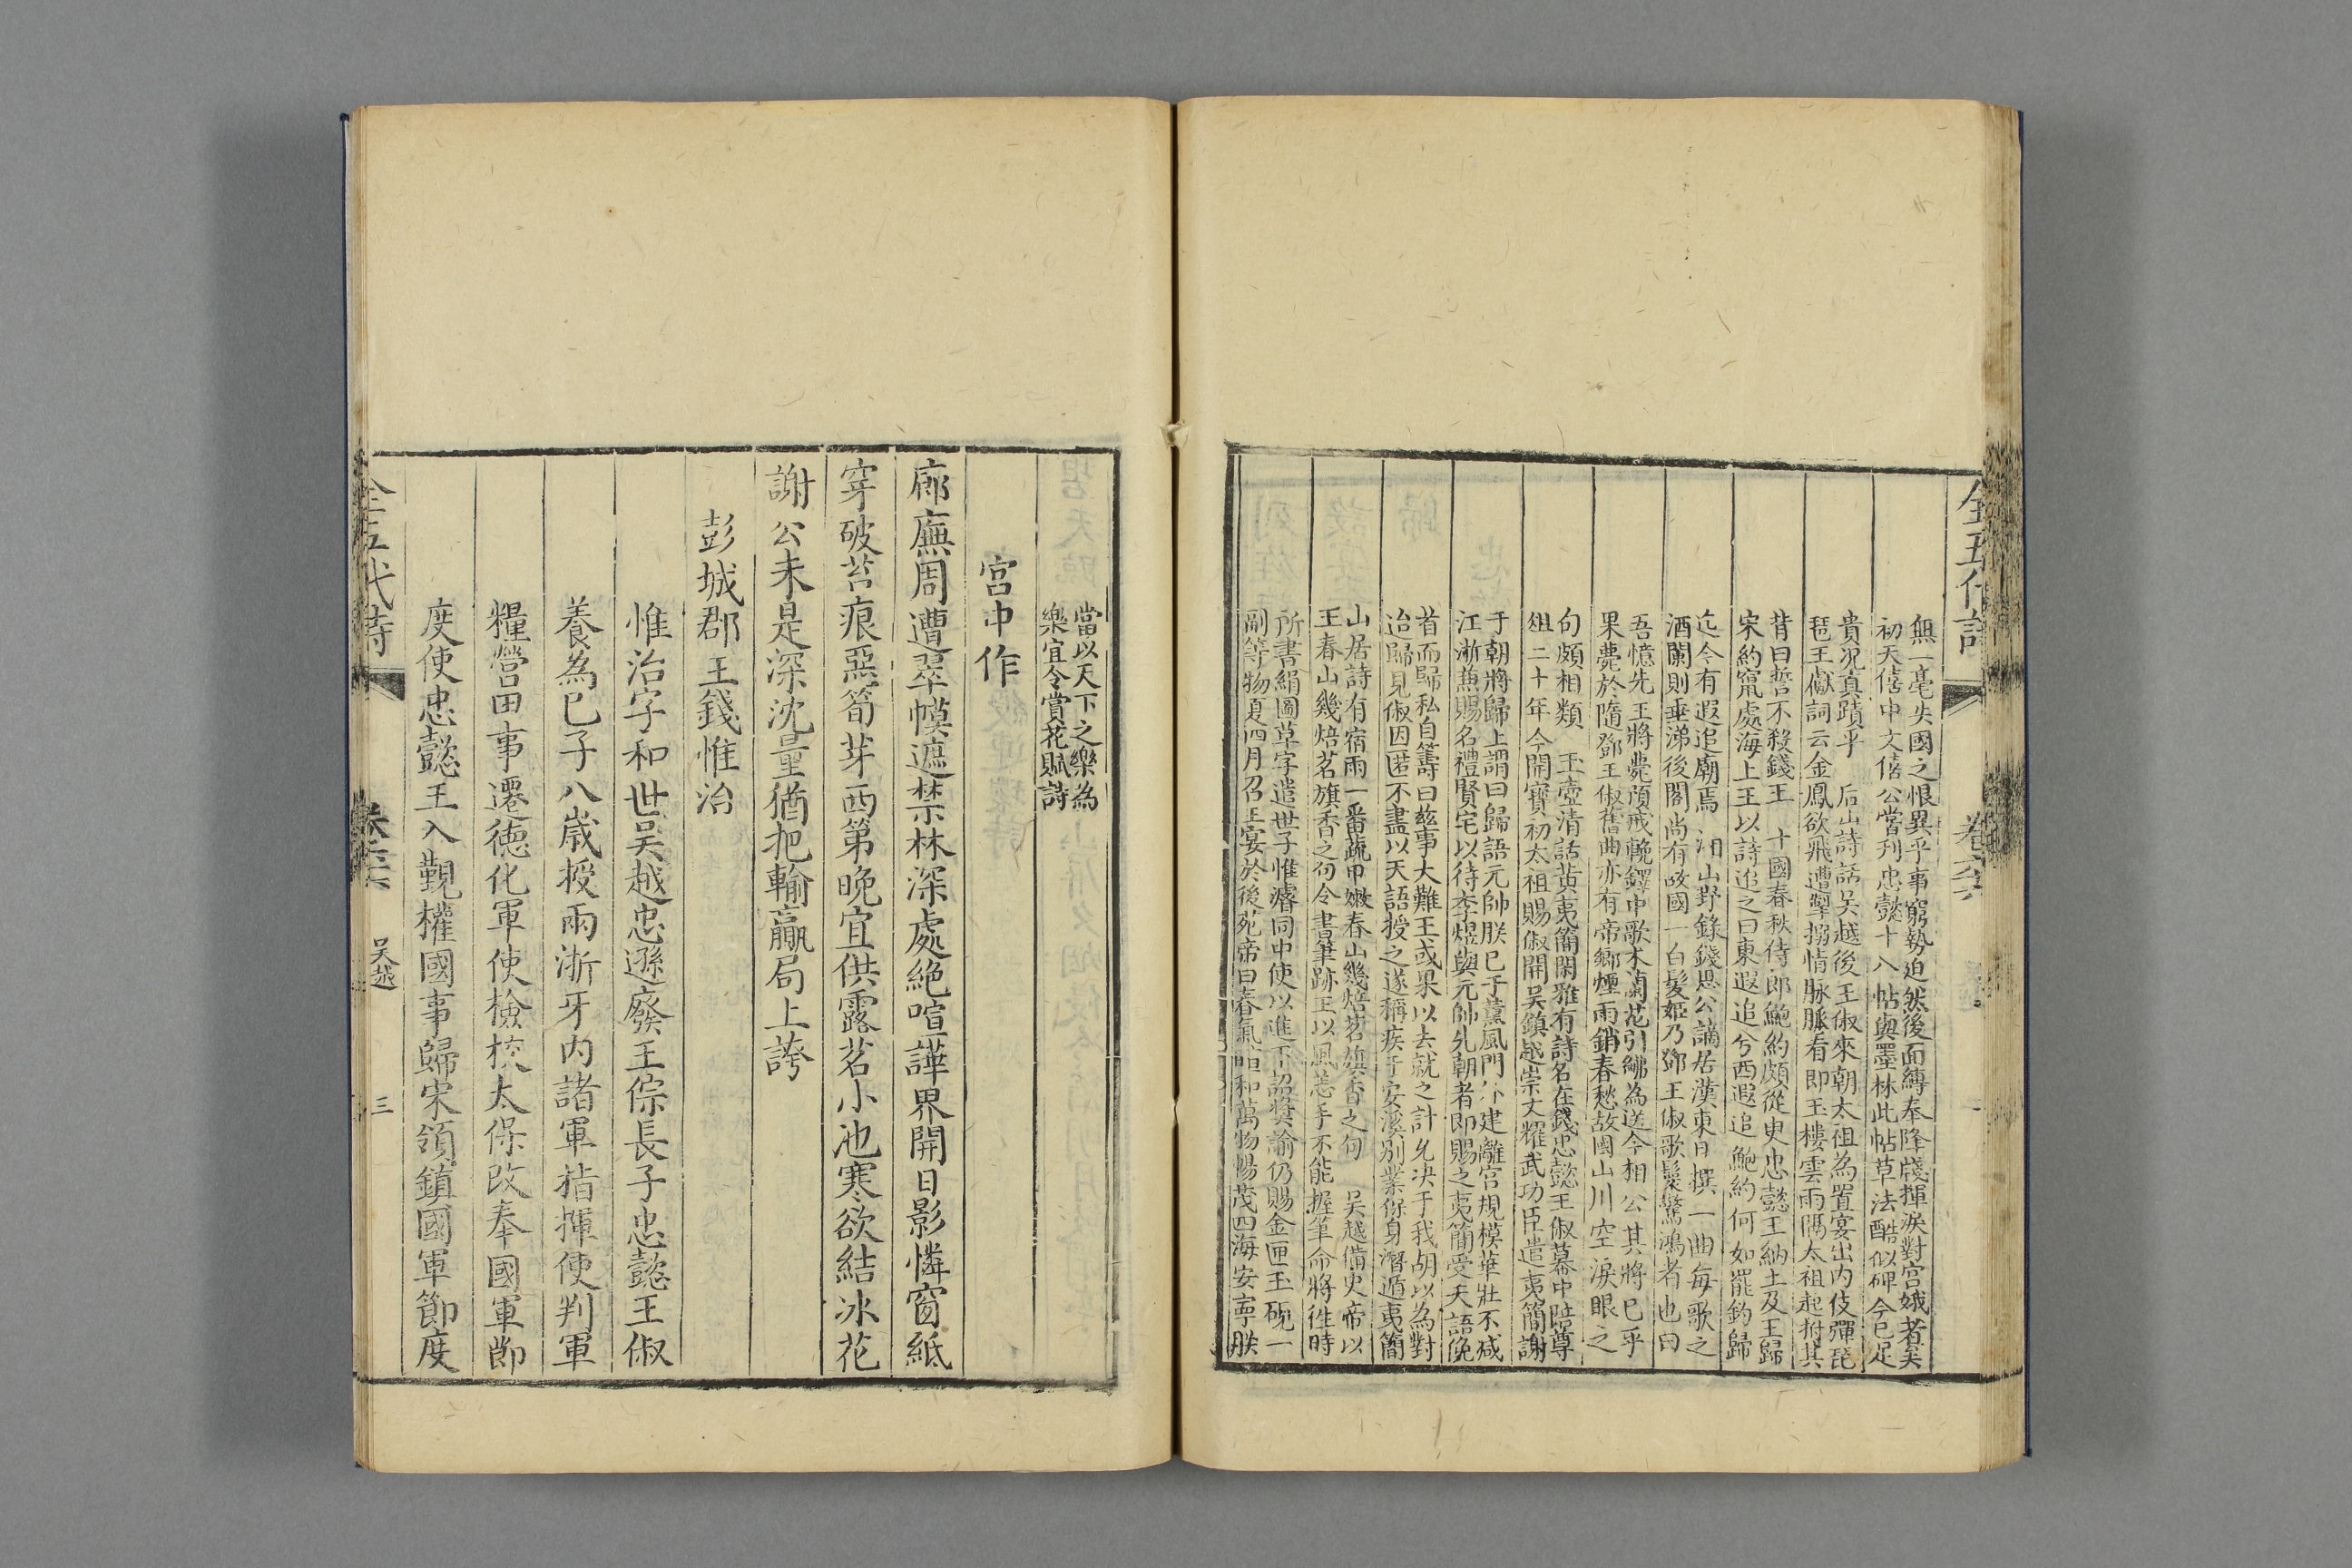 全五代詩
卷六十六
無一毫失國之恨異乎事窮勢迫然後面縛奉降牋揮淚對宮娥者矣
初天僖中文僖公嘗刋忠懿十八帖與墨林此帖草法酷似碑今已足
貴况真蹟乎 后山詩話吴越後王俶來朝太祖為置宴出内伎彈琵
琶王獻詞云金鳳欲飛遭掣搦情脉脈看即玉樓雲雨隔太祖起拊其
背曰誓不殺錢王 十國春秋侍郎鮑約頗從臾忠懿王納土及王歸
宋約竄處海上王以詩追之曰東遐追兮西遐追鮑約何如罷釣歸
迄今有遐追廟焉 湘山野錄錢思公謫居漢東日撰一曲每歌之
酒闌則垂涕後閣尚有故國一白髮姬乃鄧王俶歌鬟驚鴻者也曰
吾憶先王將薨預戒輓鐸中歌木蘭花引紼為送今相公其將已乎
果薨於隨鄧王俶舊曲亦有帝鄉煙雨銷春愁故國山川空淚眼之
句頗相類 玉壺清話黄夷簡閑雅有詩名在錢忠懿王俶幕中陪尊
俎二十年今開寶初太祖賜俶開吴鎮越崇文耀武功臣遣夷簡謝
于朝將歸上謂曰歸語元帥朕已于薰風門外建離宮規模華壯不减
江淅兼賜名禮賢宅以待李煜與元帥先朝者即賜之夷簡受天語俛
首而歸私自籌曰兹事大難王或果以去就之計先决于我胡以為對
迨歸見俶因匿不盡以天語授之遂稱疾于安溪别業俢身潛遁夷簡
山居詩有宿雨一番蔬甲嫩春山幾焙茗旗香之句 吴越備史帝以
王春山幾焙茗旗香之句令書筆跡王以風恙手不能握筆命將徃時
所書絹圖草字遣世子惟濬同中使以進下詔奬諭仍賜金匣玉硯一
副等物夏四月召王宴於後苑帝曰春氣暄和萬物暢茂四海安寕朕
當以天下之樂為
樂宜令賞花賦詩
宮中作
廊廡周遭翠幙遮禁林深處絶喧譁界開日影憐窗紙
穿破苔痕惡筍芽西第晚宜供露茗小池寒欲結冰花
謝公未是深沈量猶把輸贏局上誇
彭城郡王錢惟治
惟治字和世吴越忠遜廢王倧長子忠懿王俶
養為已子八歲授兩淅牙内諸軍指揮使判軍
糧營田事遷德化軍使檢挍太保改奉國軍節
度使忠懿王入覲權國事歸宋領鎮國軍節度
全五代詩
卷六十六
吴越
三